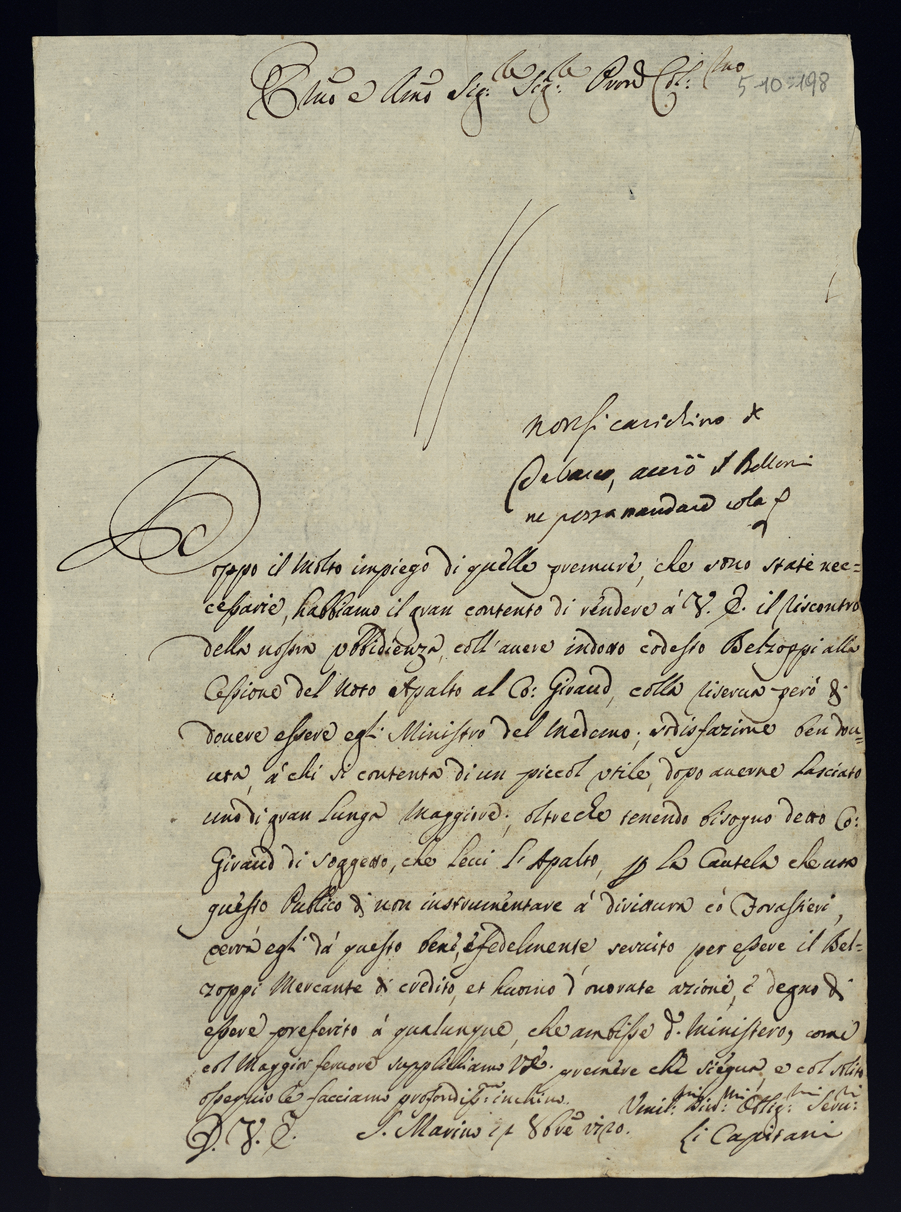 Emo e Rmo Sig:re Sig:re Prōn Col:mo
5-10-198
non si
acciò il Belloni
ne possa mandare
Doppo il molto impiego di quelle premure, che sono state nec=
cessarie, habbiamo il gran contento di rendere á V. E. il riscontro
della nostra vbbidienza, coll'avere indotto codesto Belzoppi alla
Cessione del noto Apalto al Co: Giraud, colla riserva però di
dovere essere egli Ministro del Medemo; sodisfazione ben dou=
uta, á chi si contenta di un piccol vtile, dopo averne lasciato
uno di gran lunga maggiore; oltreche tenendo bisogno detto Co:
Giraud di soggetto, che leui l'Apalto, p la Cautela che usa
questo Publico di non instrumentare á dirittura có Forastieri,
verrá egli dá questo bene, e fedelmente seruito per essere il Bel=
zoppi Mercante di credito, et huomo d'onorate azioni, e degno di
essere preferito á qualunque, che ambisse d.o ministero, come
col maggior feruore supplichiamo V.E. premere che siegua, e col solito
ossequio le facciamo profondis.mo inchino.
D. V. E. S. Marino 8bre 1720.
Vmil:mi Diu:mi Oblig:mi Seru:ri
Li Capitani